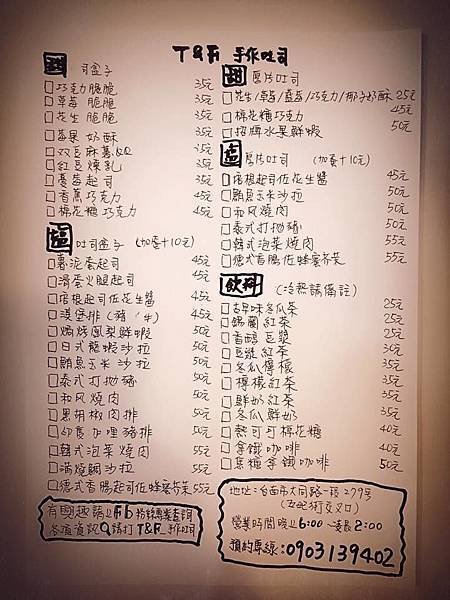 T&F 手作吐司
甜 司盒子
巧克力脆脆 35元
草莓 脆脆 35元
花生 脆脆 35元
莓果 奶酥 35元
双豆麻糬QQ 35元
紅豆煉乳 35元
蔓莓起司 35元
香蕉巧克力 45元
棉花糖巧克力 45元
鹹 吐司盒子 (加蛋+10元)
薯泥蛋起司 45元
滑蛋火腿起司 45元
培根起司佐花生醬 45元
漢堡排(豬/牛) 45元
焗烤鳳梨鮮蝦 50元
日式龍蝦沙拉 50元
鮪魚玉米沙拉 50元
泰式打拋豬 50元
和風燒肉 50元
黑胡椒肉排 50元
印度咖哩豬排 50元
韓式泡菜燒肉 55元
燻鮭沙拉 55元
德式香腸起司佐蜂蜜芥茉 55元
有興趣請上Fb粉絲專業查詢
各項資訊 請打T&F 手作吐司
甜 厚片吐司
花生/草莓/藍莓/巧克力/椰子奶酥 25元
棉花糖巧克力 45元
招牌水果鮮蝦 50元
鹹 厚片吐司 (加蛋+10元)
培根起司佐花生醬 45元
鮪魚玉米沙拉 50元
和風燒肉 50元
泰式打拋豬 50元
韓式泡菜燒肉 55元
德式香腸佐蜂蜜芥茉 55元
飲料 (冷熱請備註)
古早味冬瓜茶 25元
錫蘭紅茶 25元
香醇豆漿 25元
豆漿紅茶 30元
冬瓜檸檬 35元
檸檬紅茶 35元
鮮奶紅茶 35元
冬瓜鮮奶 35元
熱可可棉花糖 40元
拿鐵咖啡 40元
焦糖拿鐵咖啡 50元
地址:台南市大同路一段279號
營業時間晚上6:00~凌晨2:00
預約專線:0903139402